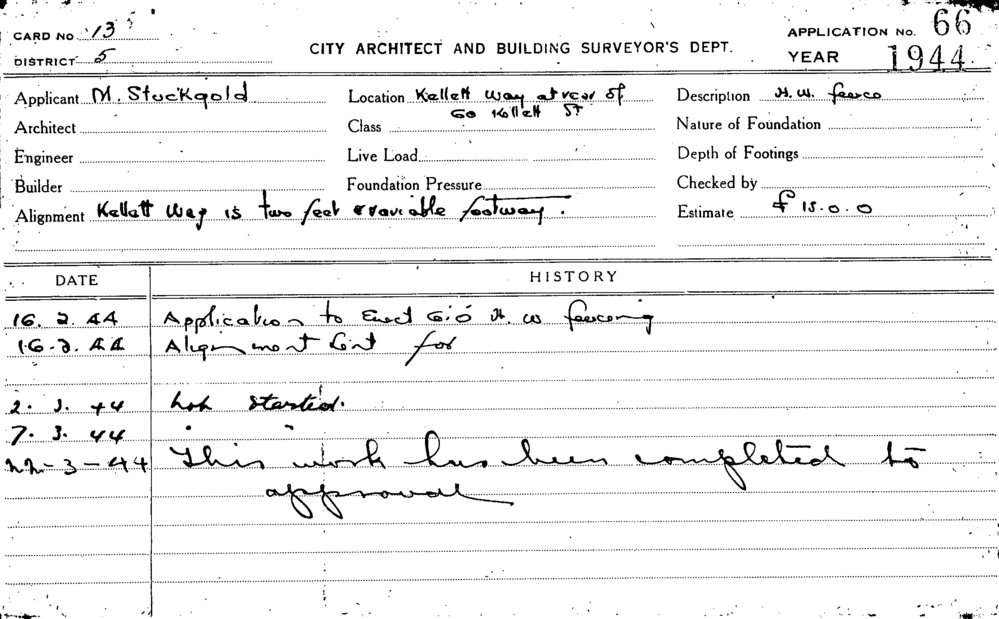 CARD No 13
APPLICATION No. 66
DISTRICT 5
CITY ARCHITECT AND BUILDING SURVEYOR'S DEPT.
YEAR 1944
Applicant M. Stuckgold
Location Kellett Way at rear of
60 Kellett St
Description H. W. fence
Architect
Class
Nature of Foundation
Engineer
Live Load
Depth of Footings
Builder
Foundation Pressure
Checked by
Alignment Kellett Way is two feet variable footway.
Estimate £ 15.0.0
DATE
HISTORY
16. 2. 44 Application to Erect 6'.0 H. W fencing
16. 2. 44 Alignment for
2. 3. 44 not started.
7. 3. 44 " "
22-3-44 This work has been completed to
approval